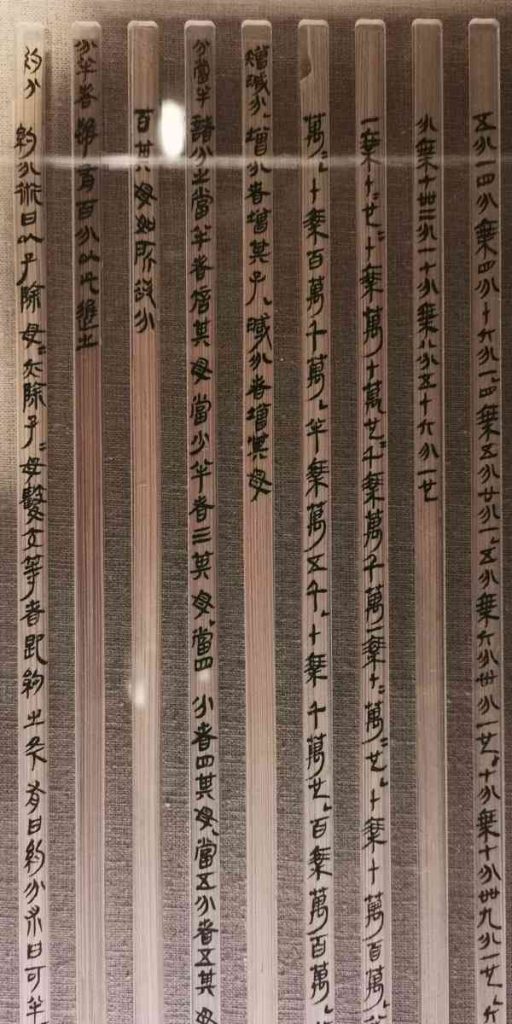 五分一四分乘四分十六分一四乘五分廿分一五分乘六分卅分一也七分乘七分卌九分一也六
分乘七卌二分一七分乘八分五十六分一也
一乘十=也=十乘萬十萬也=千乘萬千萬一乘十=萬=也十乘十萬百萬
萬=十乘百萬千萬半乘萬五千十乘千萬也百乘萬百萬
增減分增分者增其子減分者增其母
分當半諸分之當半者倍其母當少半者三其母當四分者四其母當五分者五其母
百其母如所欲分
分半者雖有百分以此進之
約分約分術曰以子除母=亦除子=母數交等者即約之矣有曰約分術曰可半